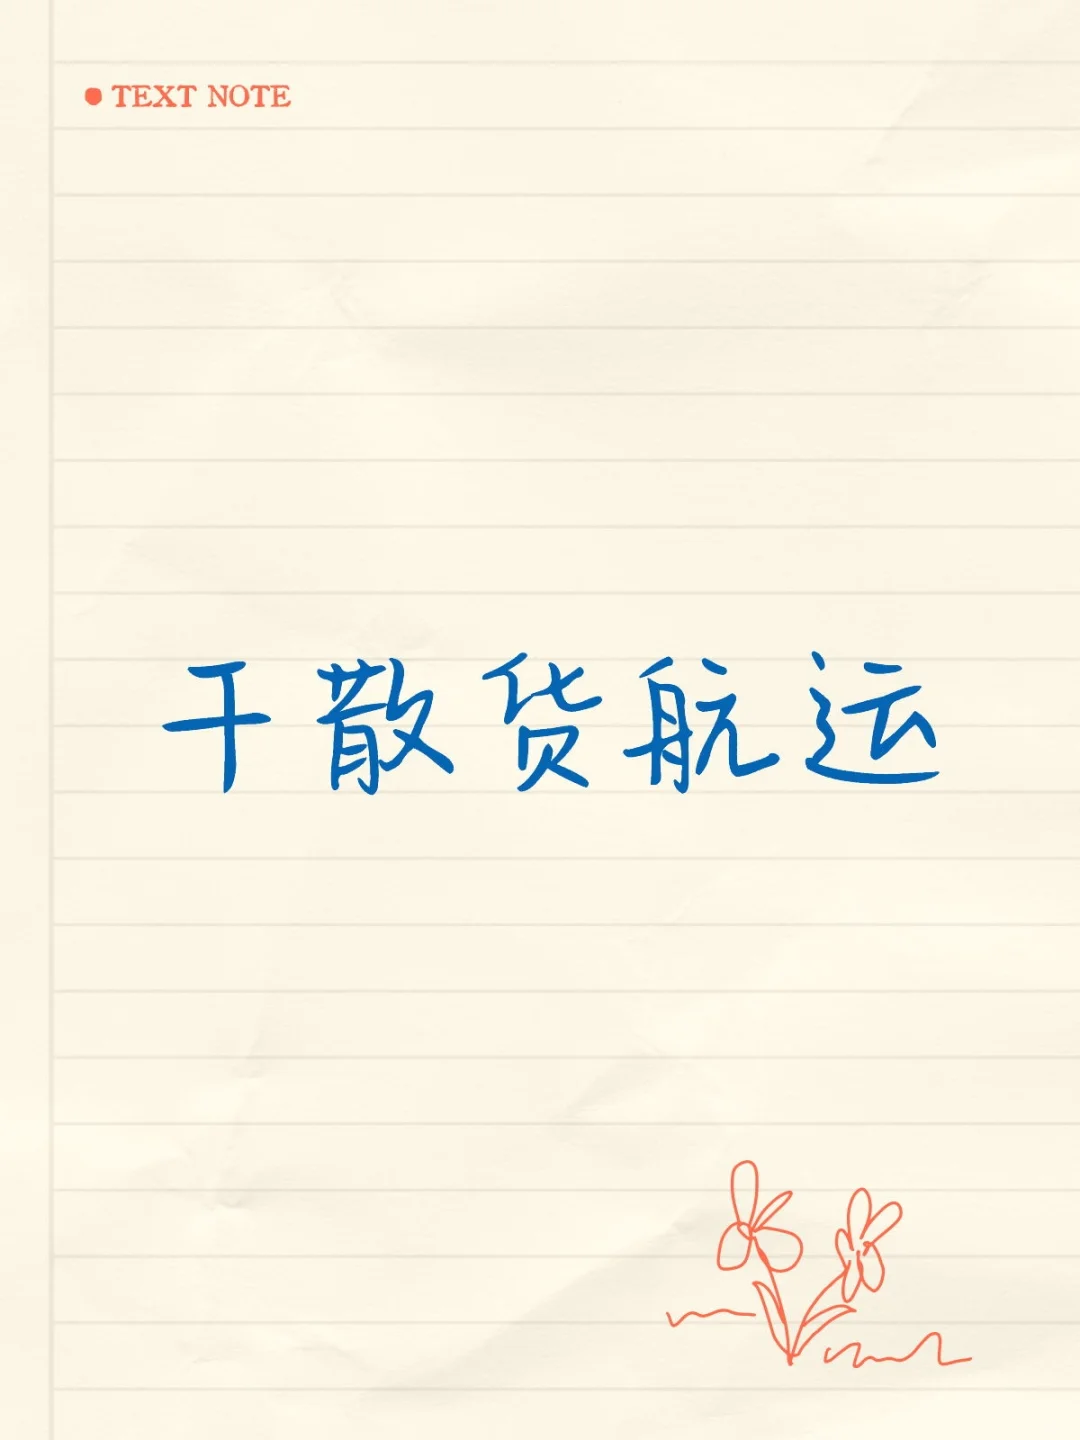 TEXT NOTE
干散货航运